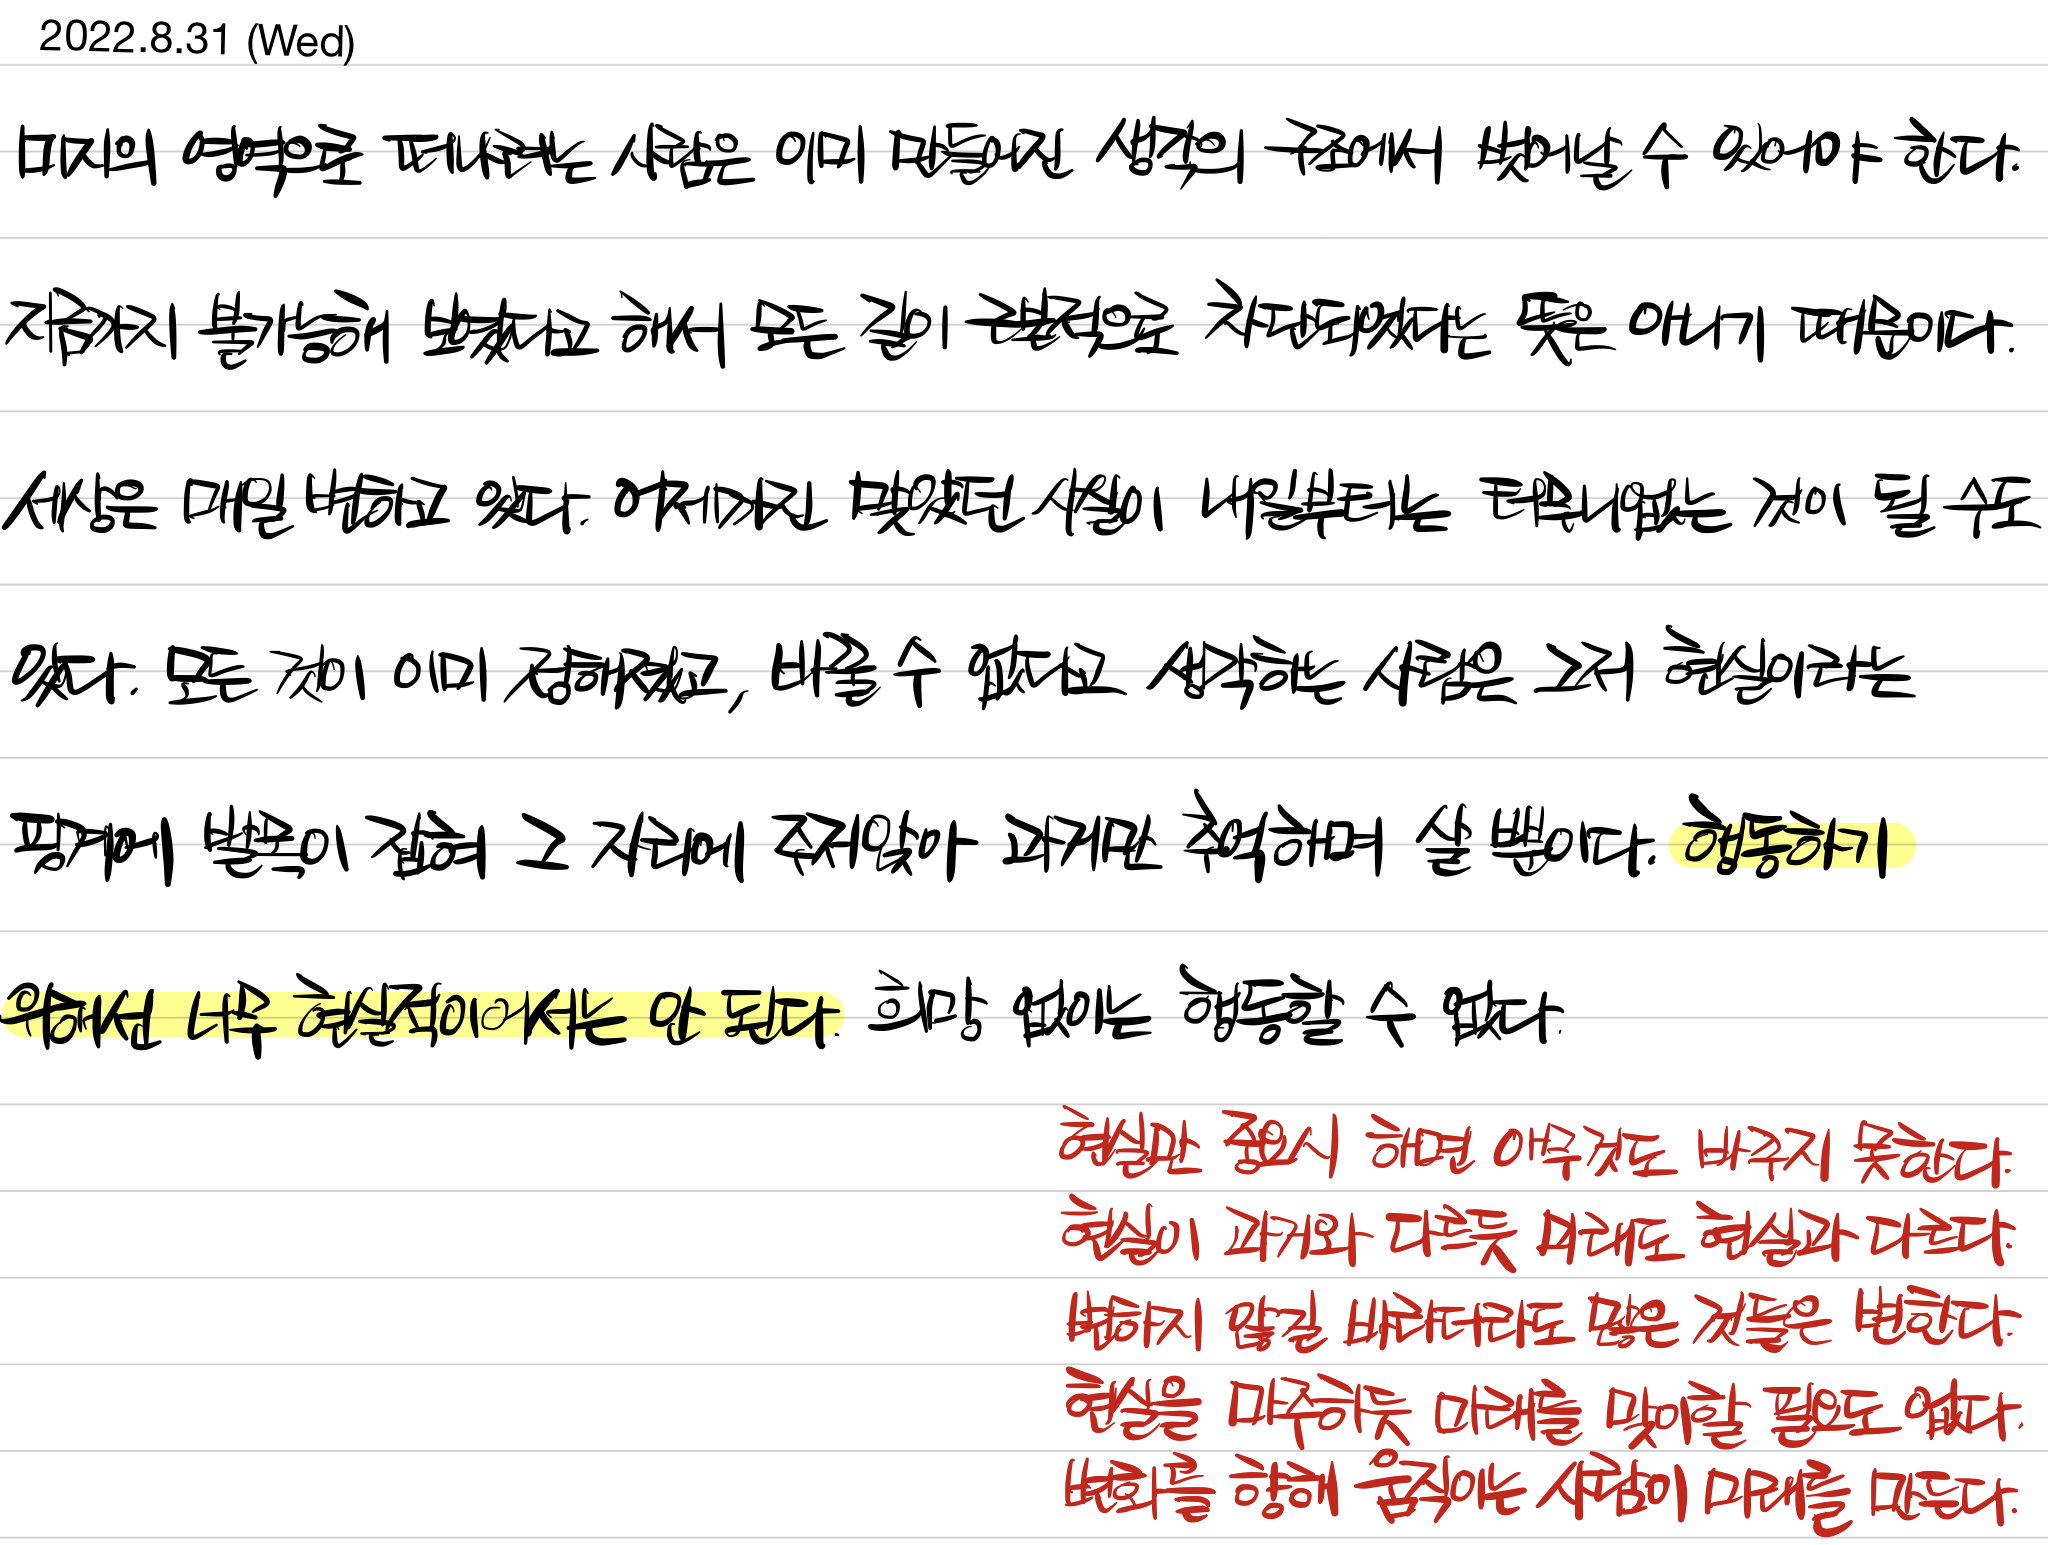 2022.8.31 (Wed)
미지의 영역으로 떠나려는 사람은 이미 만들어진 생각의 구조에서 벗어날 수 있어야 한다.
지금까지 불가능해 보였다고 해서 모든 길이 근본적으로 차단되었다는 뜻은 아니기 때문이다.
세상은 매일 변하고 있다. 어제까진 맞았던 사실이 내일부터는 터무니없는 것이 될 수도
있다. 모든 것이 이미 정해졌고, 바꿀 수 없다고 생각하는 사람은 그저 현실이라는
핑계에 발목이 잡혀 그 자리에 주저앉아 과거만 추억하며 살 뿐이다. 행동하기
위해선 너무 현실적이어서는 안 된다. 희망 없이는 행동할 수 없다.
현실만 중요시 해면 아무것도 바꾸지 못한다.
현실이 과거와 다르듯 미래도 현실과 다르다.
변하지 않길 바라더라도 많은 것들은 변한다.
현실을 마주하듯 미래를 맞이할 필요도 없다.
변화를 향해 움직이는 사람이 미래를 만든다.